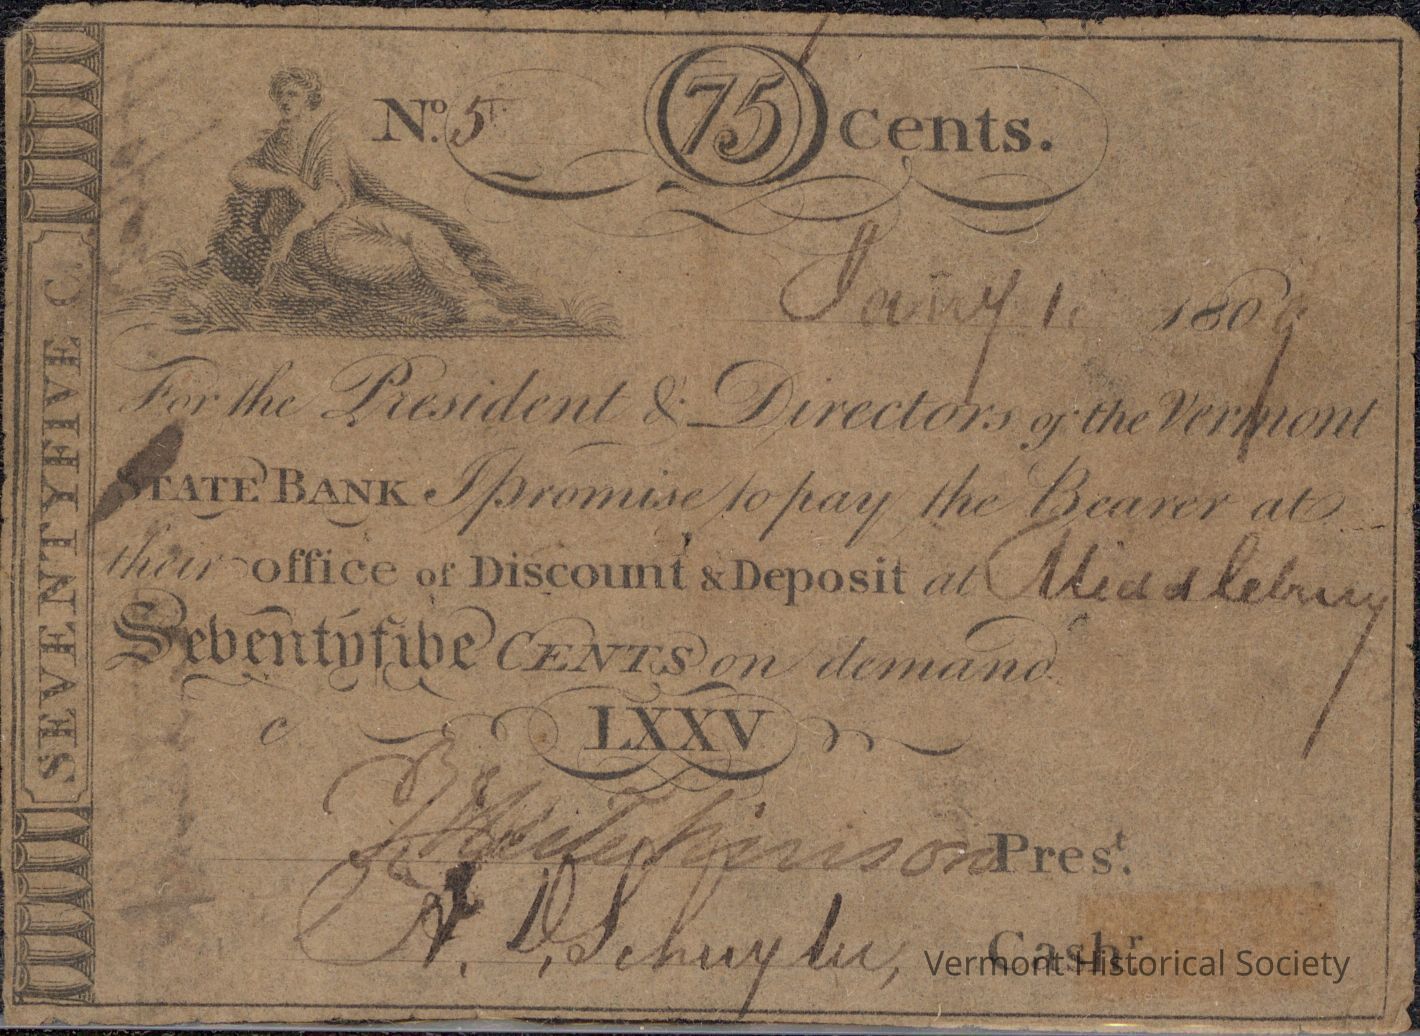 SEVENTYFIVE C.
No. 5 75 Cents.
Jan'y 1. 1809
For the President & Directors of the Vermont
STATE BANK I promise to pay the Bearer at
their office of Discount & Deposit at Middlebury
Seventyfive CENTS on demand.
C
LXXV
Hutchinson Prest.
A. D. Schuyler, Cashr.
Vermont Historical Society